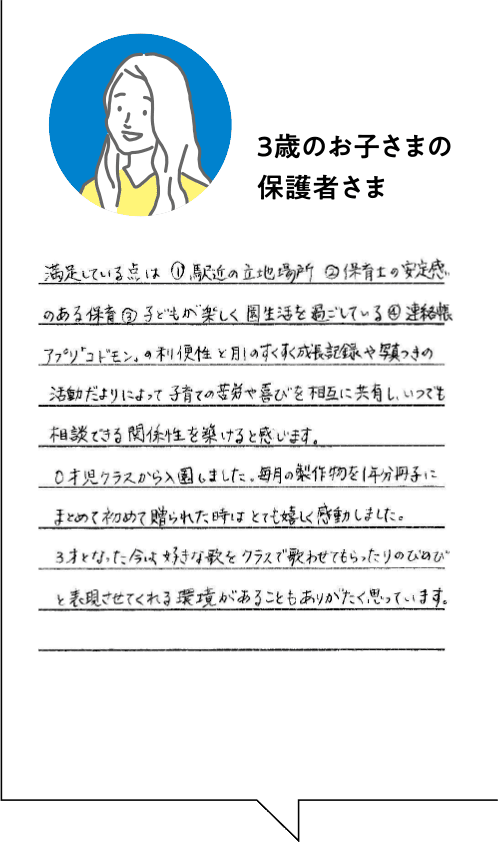 3歳のお子さまの
保護者さま
満足している点は ①駅近の立地場所 ②保育士の安定感
のある保育 ③子どもが楽しく園生活を過ごしている ④連絡帳
アプリ「コドモン」の利便性と月1のすくすく成長記録や写真つきの
活動だよりによって子育ての苦労や喜びを相互に共有し、いつでも
相談できる関係性を築けると感じます。
0才児クラスから入園しました。毎月の製作物を1年分冊子に
まとめて初めて贈られた時はとても嬉しく感動しました。
3才となった今は好きな歌をクラスで歌わせてもらったりのびのび
と表現させてくれる環境があることもありがたく思っています。